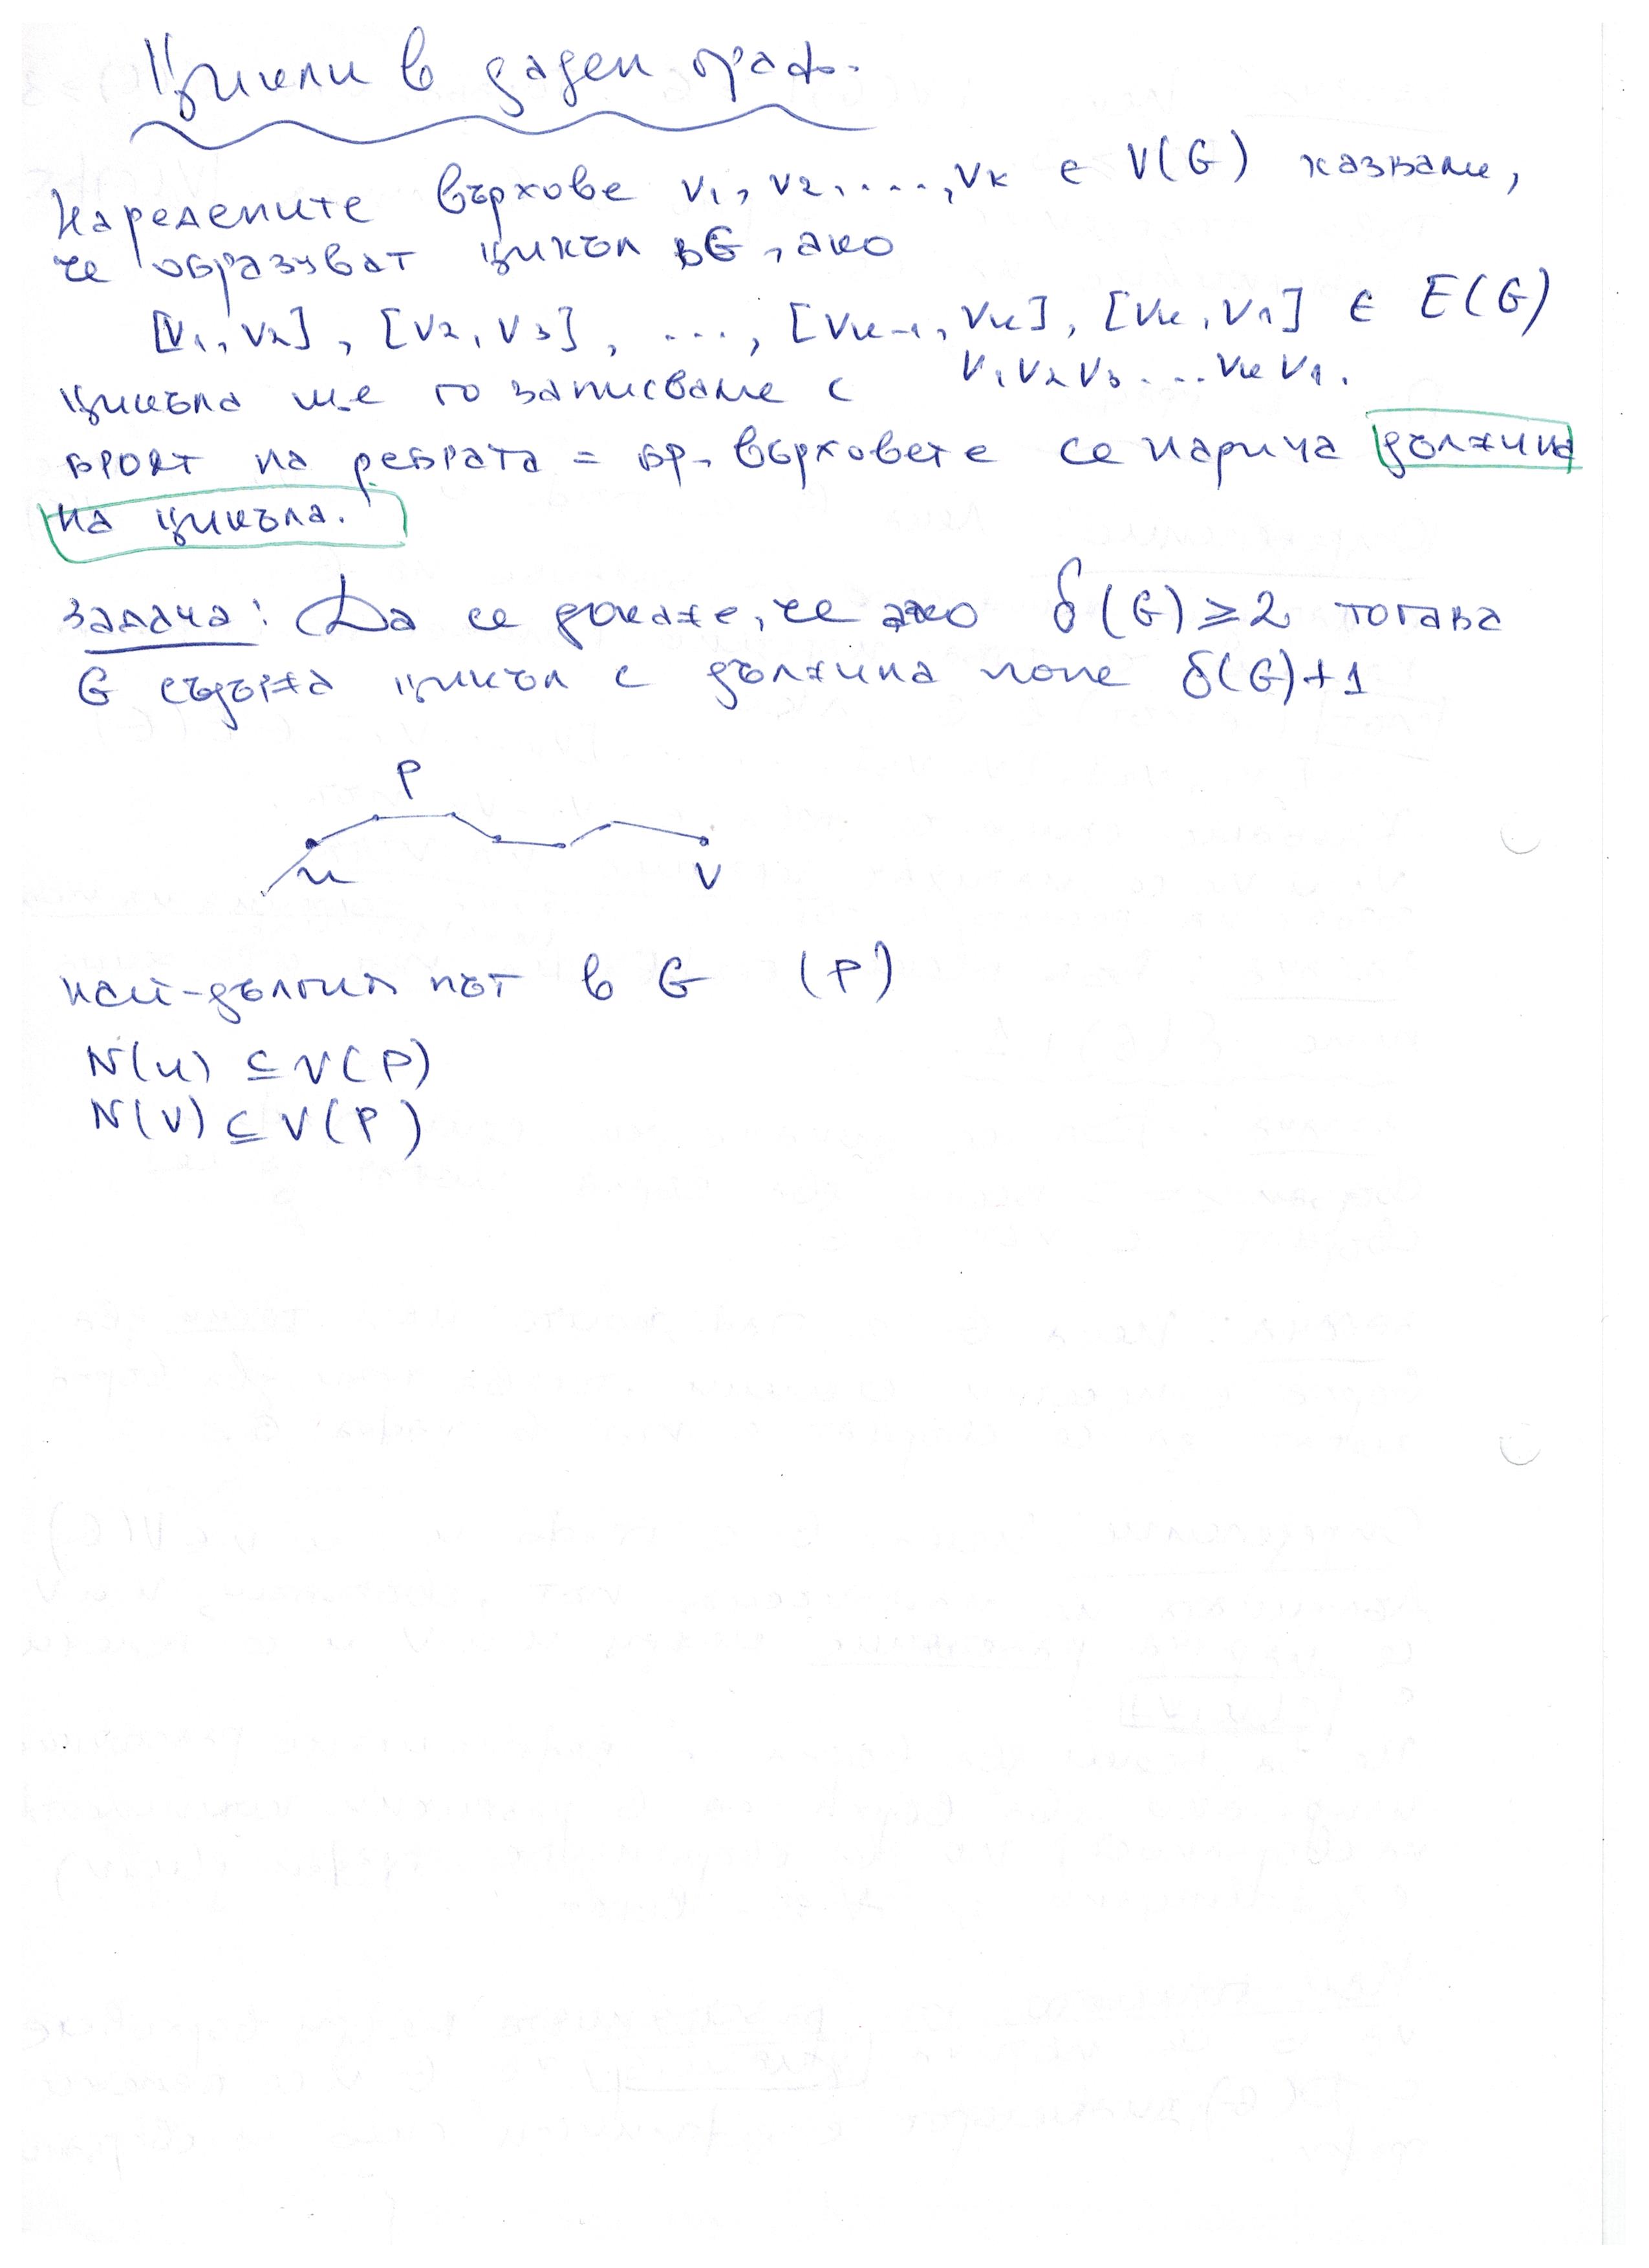 Цикли в даден граф.
Наредените върхове v₁, v₂, ...., vₖ ∈ V(G) казваме,
че образуват цикъл в G, ако
[v₁, v₂], [v₂, v₃], ..., [vₖ₋₁, vₖ], [vₖ, v₁] ∈ E(G)
цикъла ще го записваме с v₁v₂v₃...vₖv₁.
броят на ребрата = бр. върховете се нарича дължина
на цикъла.
Задача: Да се докаже, че ако δ(G) ≥ 2 тогава
G съдържа цикъл с дължина поне δ(G)+1
P
u
v
най-дългия път в G (P)
N(u) ⊆ V(P)
N(v) ⊆ V(P)